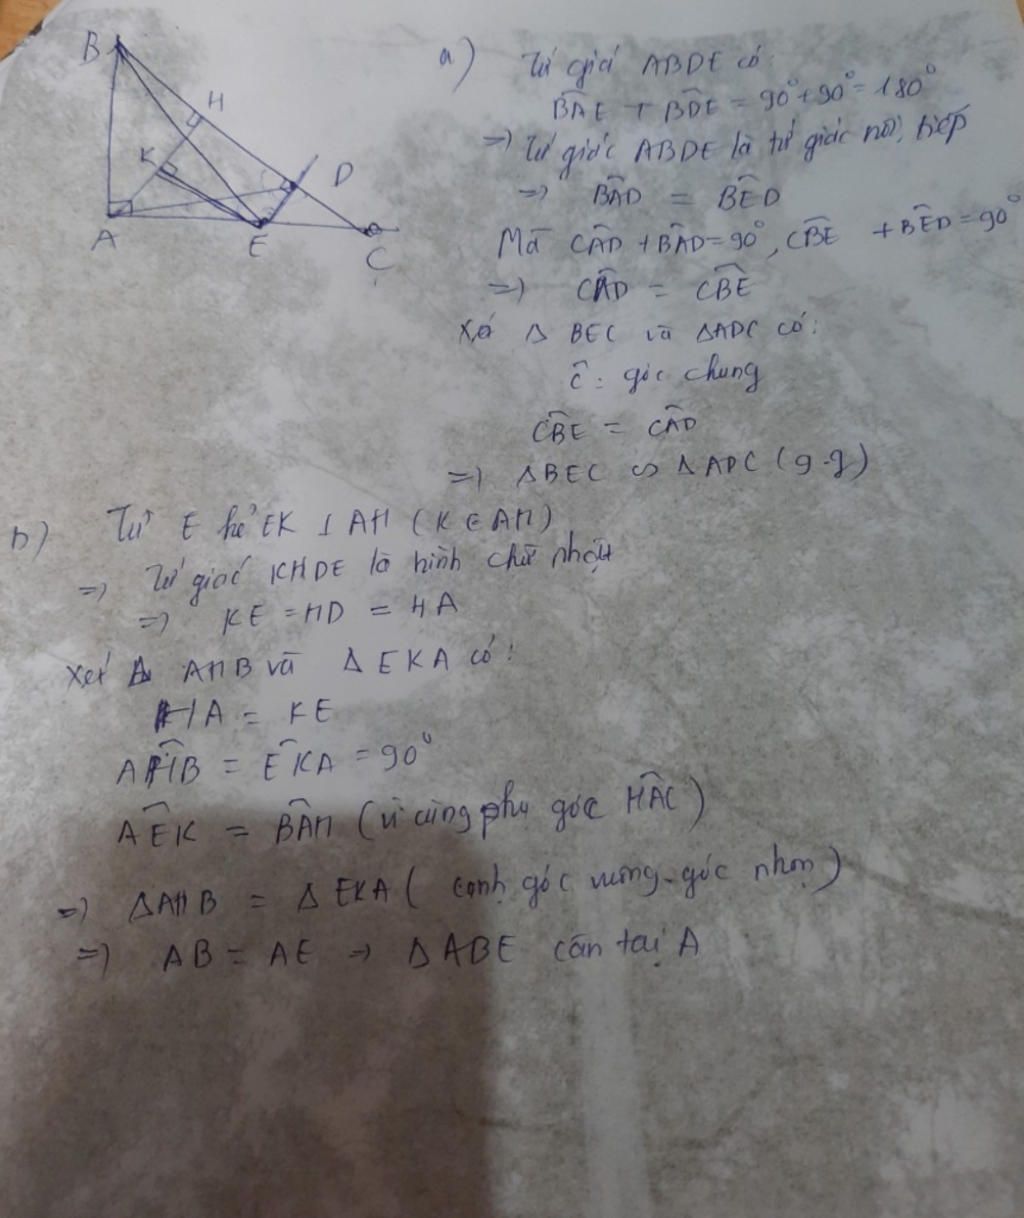 B
H
K
D
A
E
C
a) Tứ giác ABDE có:
BÂE + BD̂E = 90° + 90° = 180°
=> Tứ giác ABDE là tứ giác nội tiếp
=> BÂD = BÊD
Mà CÂD + BÂD = 90°, CB̂E + BÊD = 90°
=> CÂD = CB̂E
Xét Δ BEC và ΔADC có:
Ĉ : góc chung
CB̂E = CÂD
=> ΔBEC ∽ ΔADC (g.g)
b) Từ E kẻ EK ⊥ AH (K ∈ AH)
=> Tứ giác KHDE là hình chữ nhật
=> KE = HD = HA
Xét Δ AHB và Δ EKA có:
HA = KE
AĤB = EK̂A = 90°
AÊK = BÂH (vì cùng phụ góc HÂC)
=> ΔAHB = Δ EKA ( cạnh góc vuông-góc nhọn)
=> AB = AE → ΔABE cân tại A